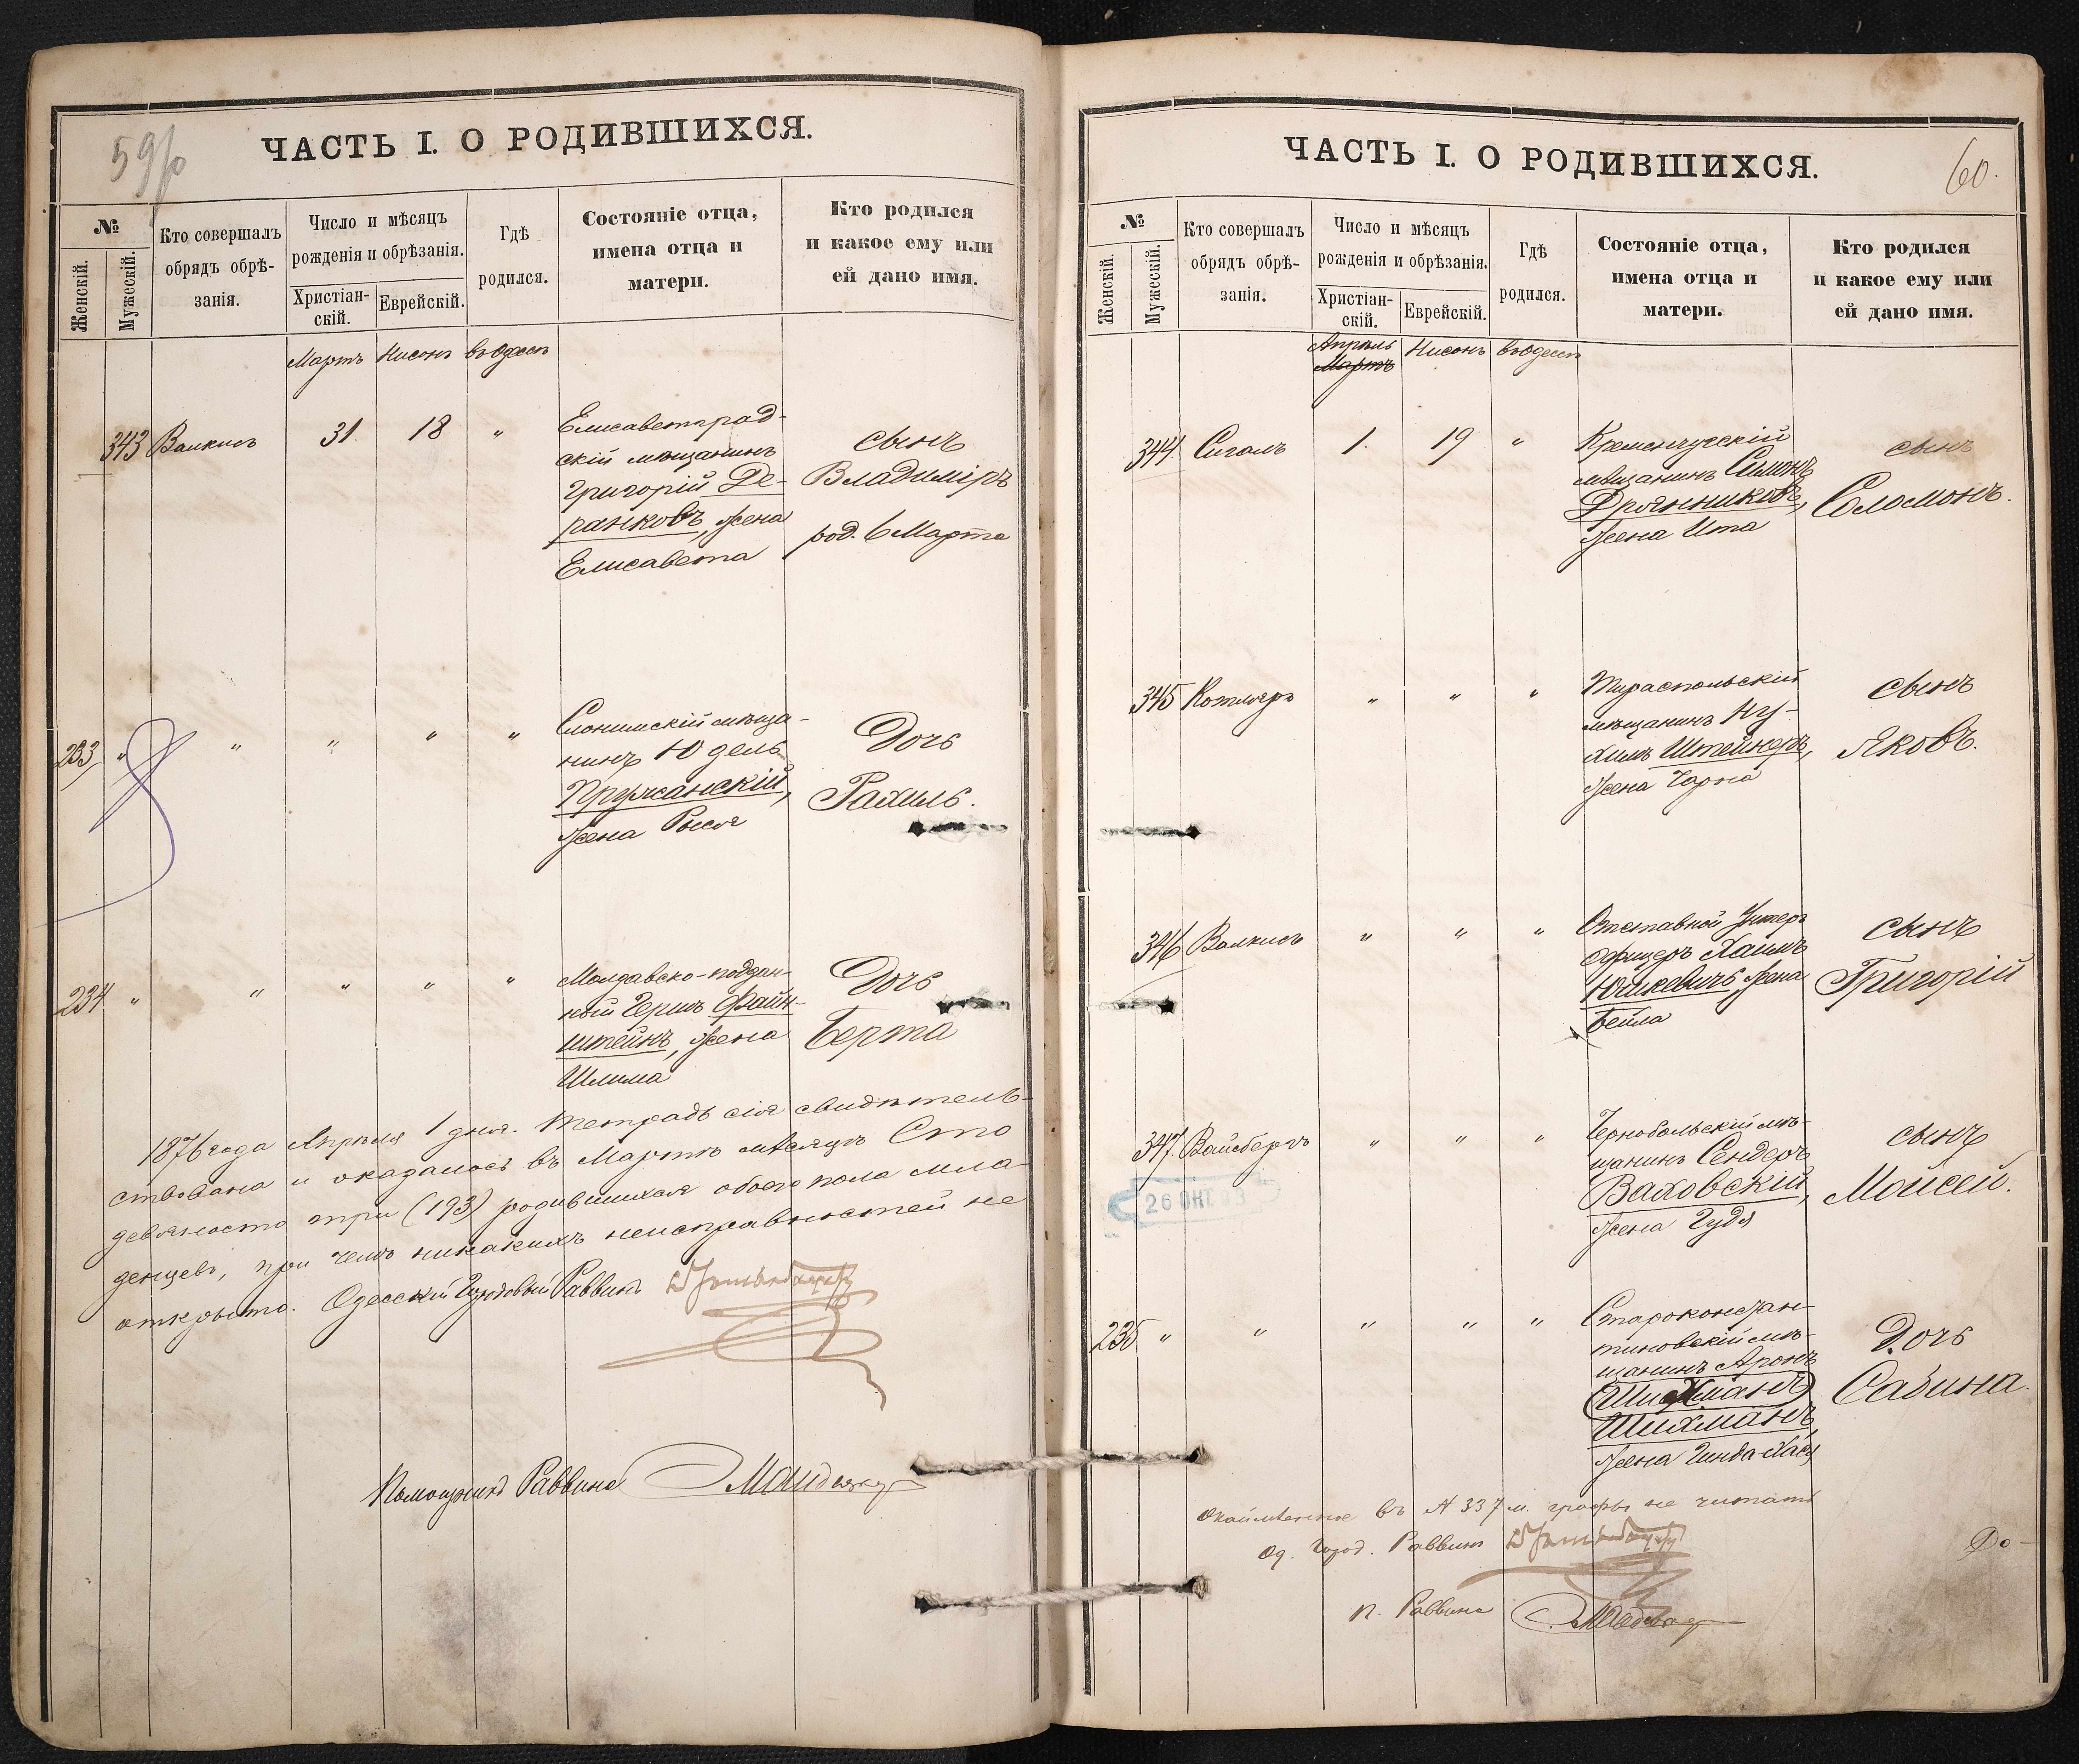 59 об
ЧАСТЬ I. О РОДИВШИХСЯ.
№
Женскій.
Мужескій.
Кто совершалъ
обрядъ обрѣ-
занія.
Число и мѣсяцъ
рожденія и обрѣзанія.
Христіан-
скій.
Еврейскій.
Гдѣ
родился.
Состояніе отца,
имена отца и
матери.
Кто родился
и какое ему или
ей дано имя.
Мартъ Нисонъ въ Одессѣ
343 Валкисъ 31. 18 "
Елисаветград-
скій мѣщанинъ
Григорій Де-
ранковъ, жена
Елисавета
сынъ
Владиміръ
род. 6 Марта
233 " " " " "
Слонимскій мѣща-
нинъ Юдель
Пружанскій,
жена Рыся
Дочь
Рахиль.
234. " " " " "
Молдавско-поддан-
ный Гершъ Файн-
штейнъ, жена
Шлима
Дочь
Берта
1876 года Апрѣля 1 дня. Тетрадь сія свидѣтель-
ствована и оказалось въ Мартѣ мѣсяцѣ Сто
девяносто три (193) родившихся обоего пола мла-
денцевъ, при чемъ никакихъ неисправностей не
открыто. Одесскій Городовый Раввинъ
Помощникъ Раввина
60.
ЧАСТЬ I. О РОДИВШИХСЯ.
№
Женскій.
Мужескій.
Кто совершалъ
обрядъ обрѣ-
занія.
Число и мѣсяцъ
рожденія и обрѣзанія.
Христіан-
скій.
Еврейскій.
Гдѣ
родился.
Состояніе отца,
имена отца и
матери.
Кто родился
и какое ему или
ей дано имя.
Апрѣль Нисонъ въ Одессѣ
Мартъ
344. Сигалъ 1. 19 "
Кременчугскій
мѣщанинъ Симонъ
Дрочниковъ,
жена Ита
сынъ
Соломонъ.
345 Котляръ " " "
Тираспольскій
мѣщанинъ Ну-
химъ Штейнеръ,
жена Чарна
сынъ
Яковъ.
346 Валкисъ " " "
Отставной Унтеръ
офицеръ Хаимъ
Юшкевичъ, жена
Бейла
сынъ
Григорій
347. Вайсбергъ " " "
Чернобольскій мѣ-
щанинъ Сендеръ
Ваховскій,
жена Гудя
сынъ
Мойсей.
26 ОКТ. 93
235 " " " " "
Староконстан-
тиновскій мѣ-
щанинъ Аронъ
Шихманъ
Шихманъ,
жена Гинда-Хася
Дочь
Сабина.
Окаймленное въ № 337 м. графы не читать
Од. Город. Раввинъ
П. Раввина
До-